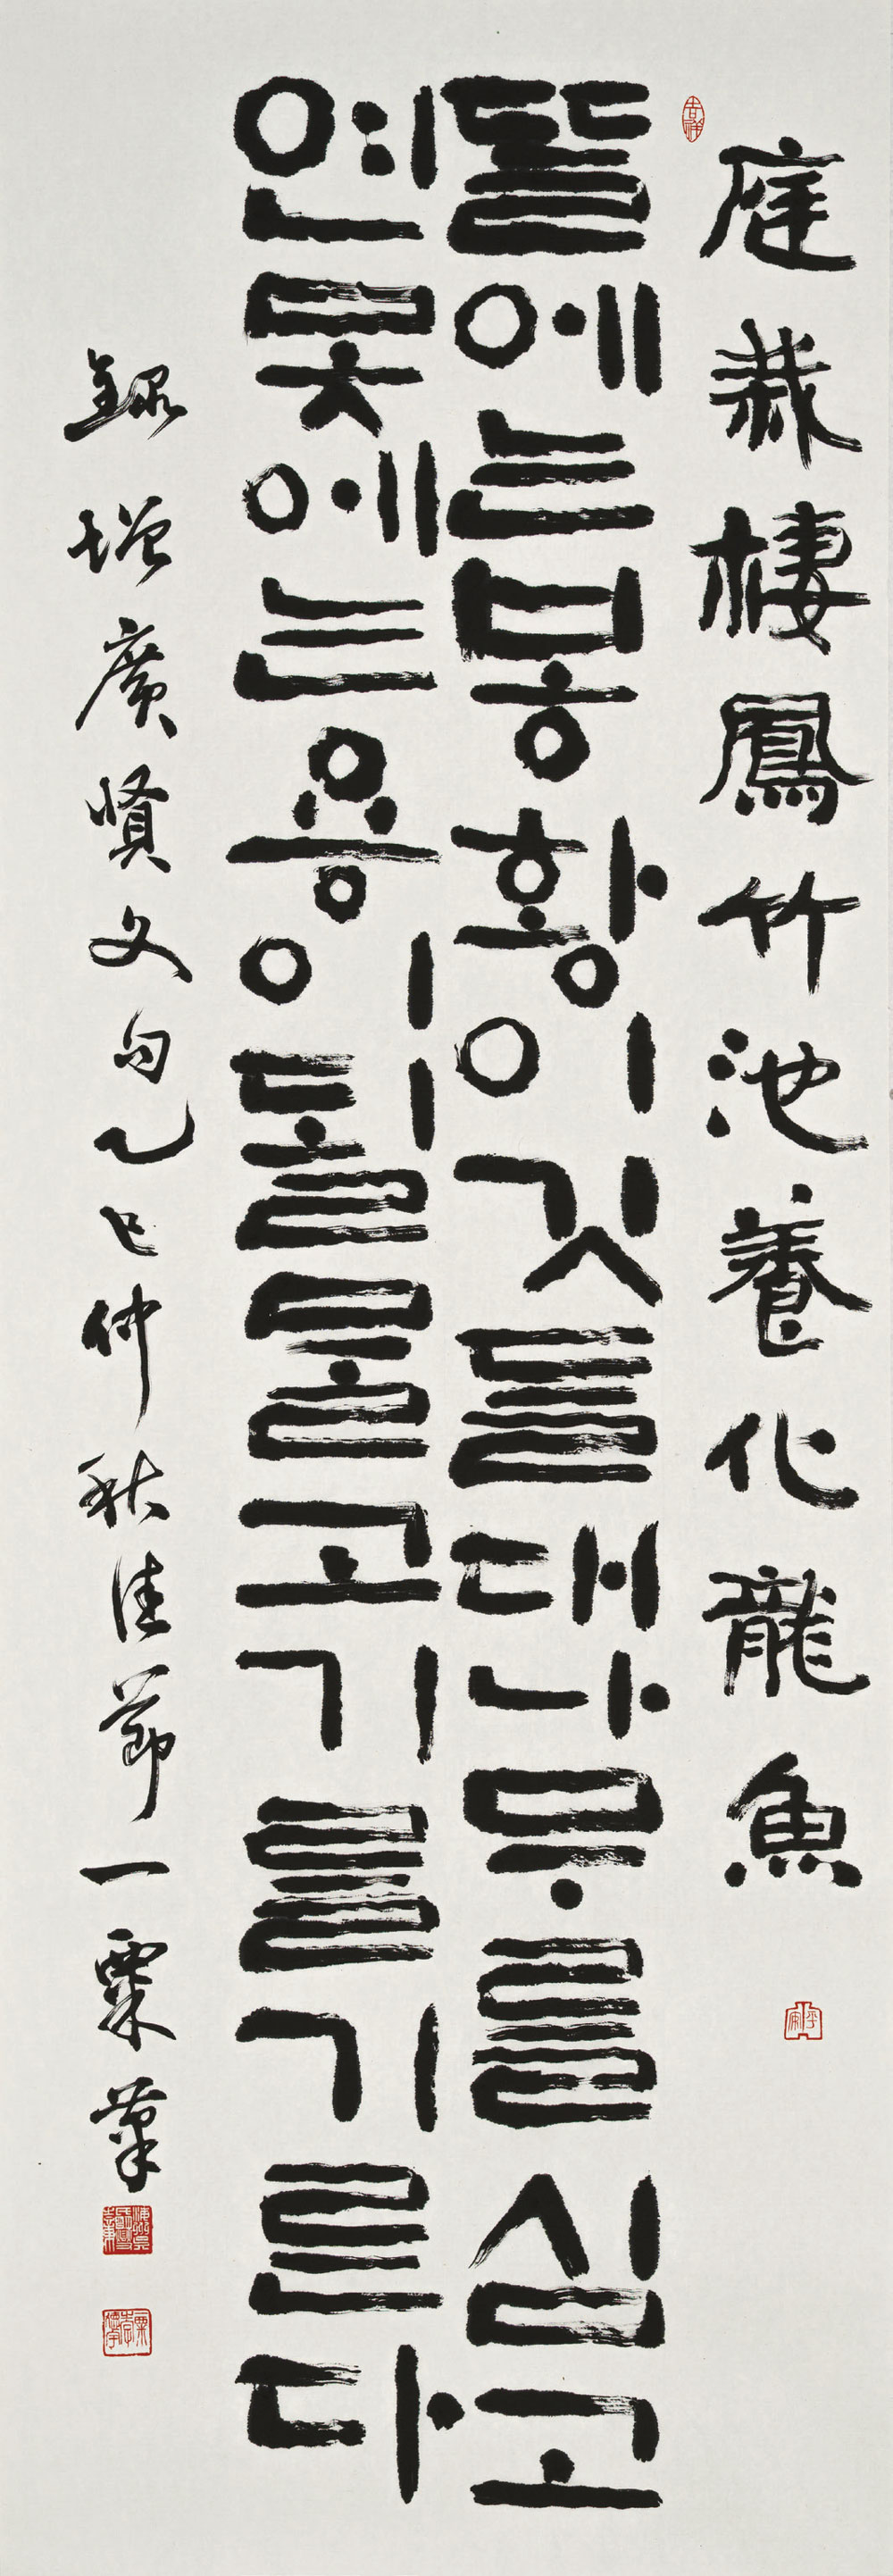 吉祥
庭栽棲鳳竹池養化龍魚
뜰에는봉황이깃들대나무를심고
연못에는용이될물고기를기른다
錄增廣賢文句乙巳仲秋佳節一粟